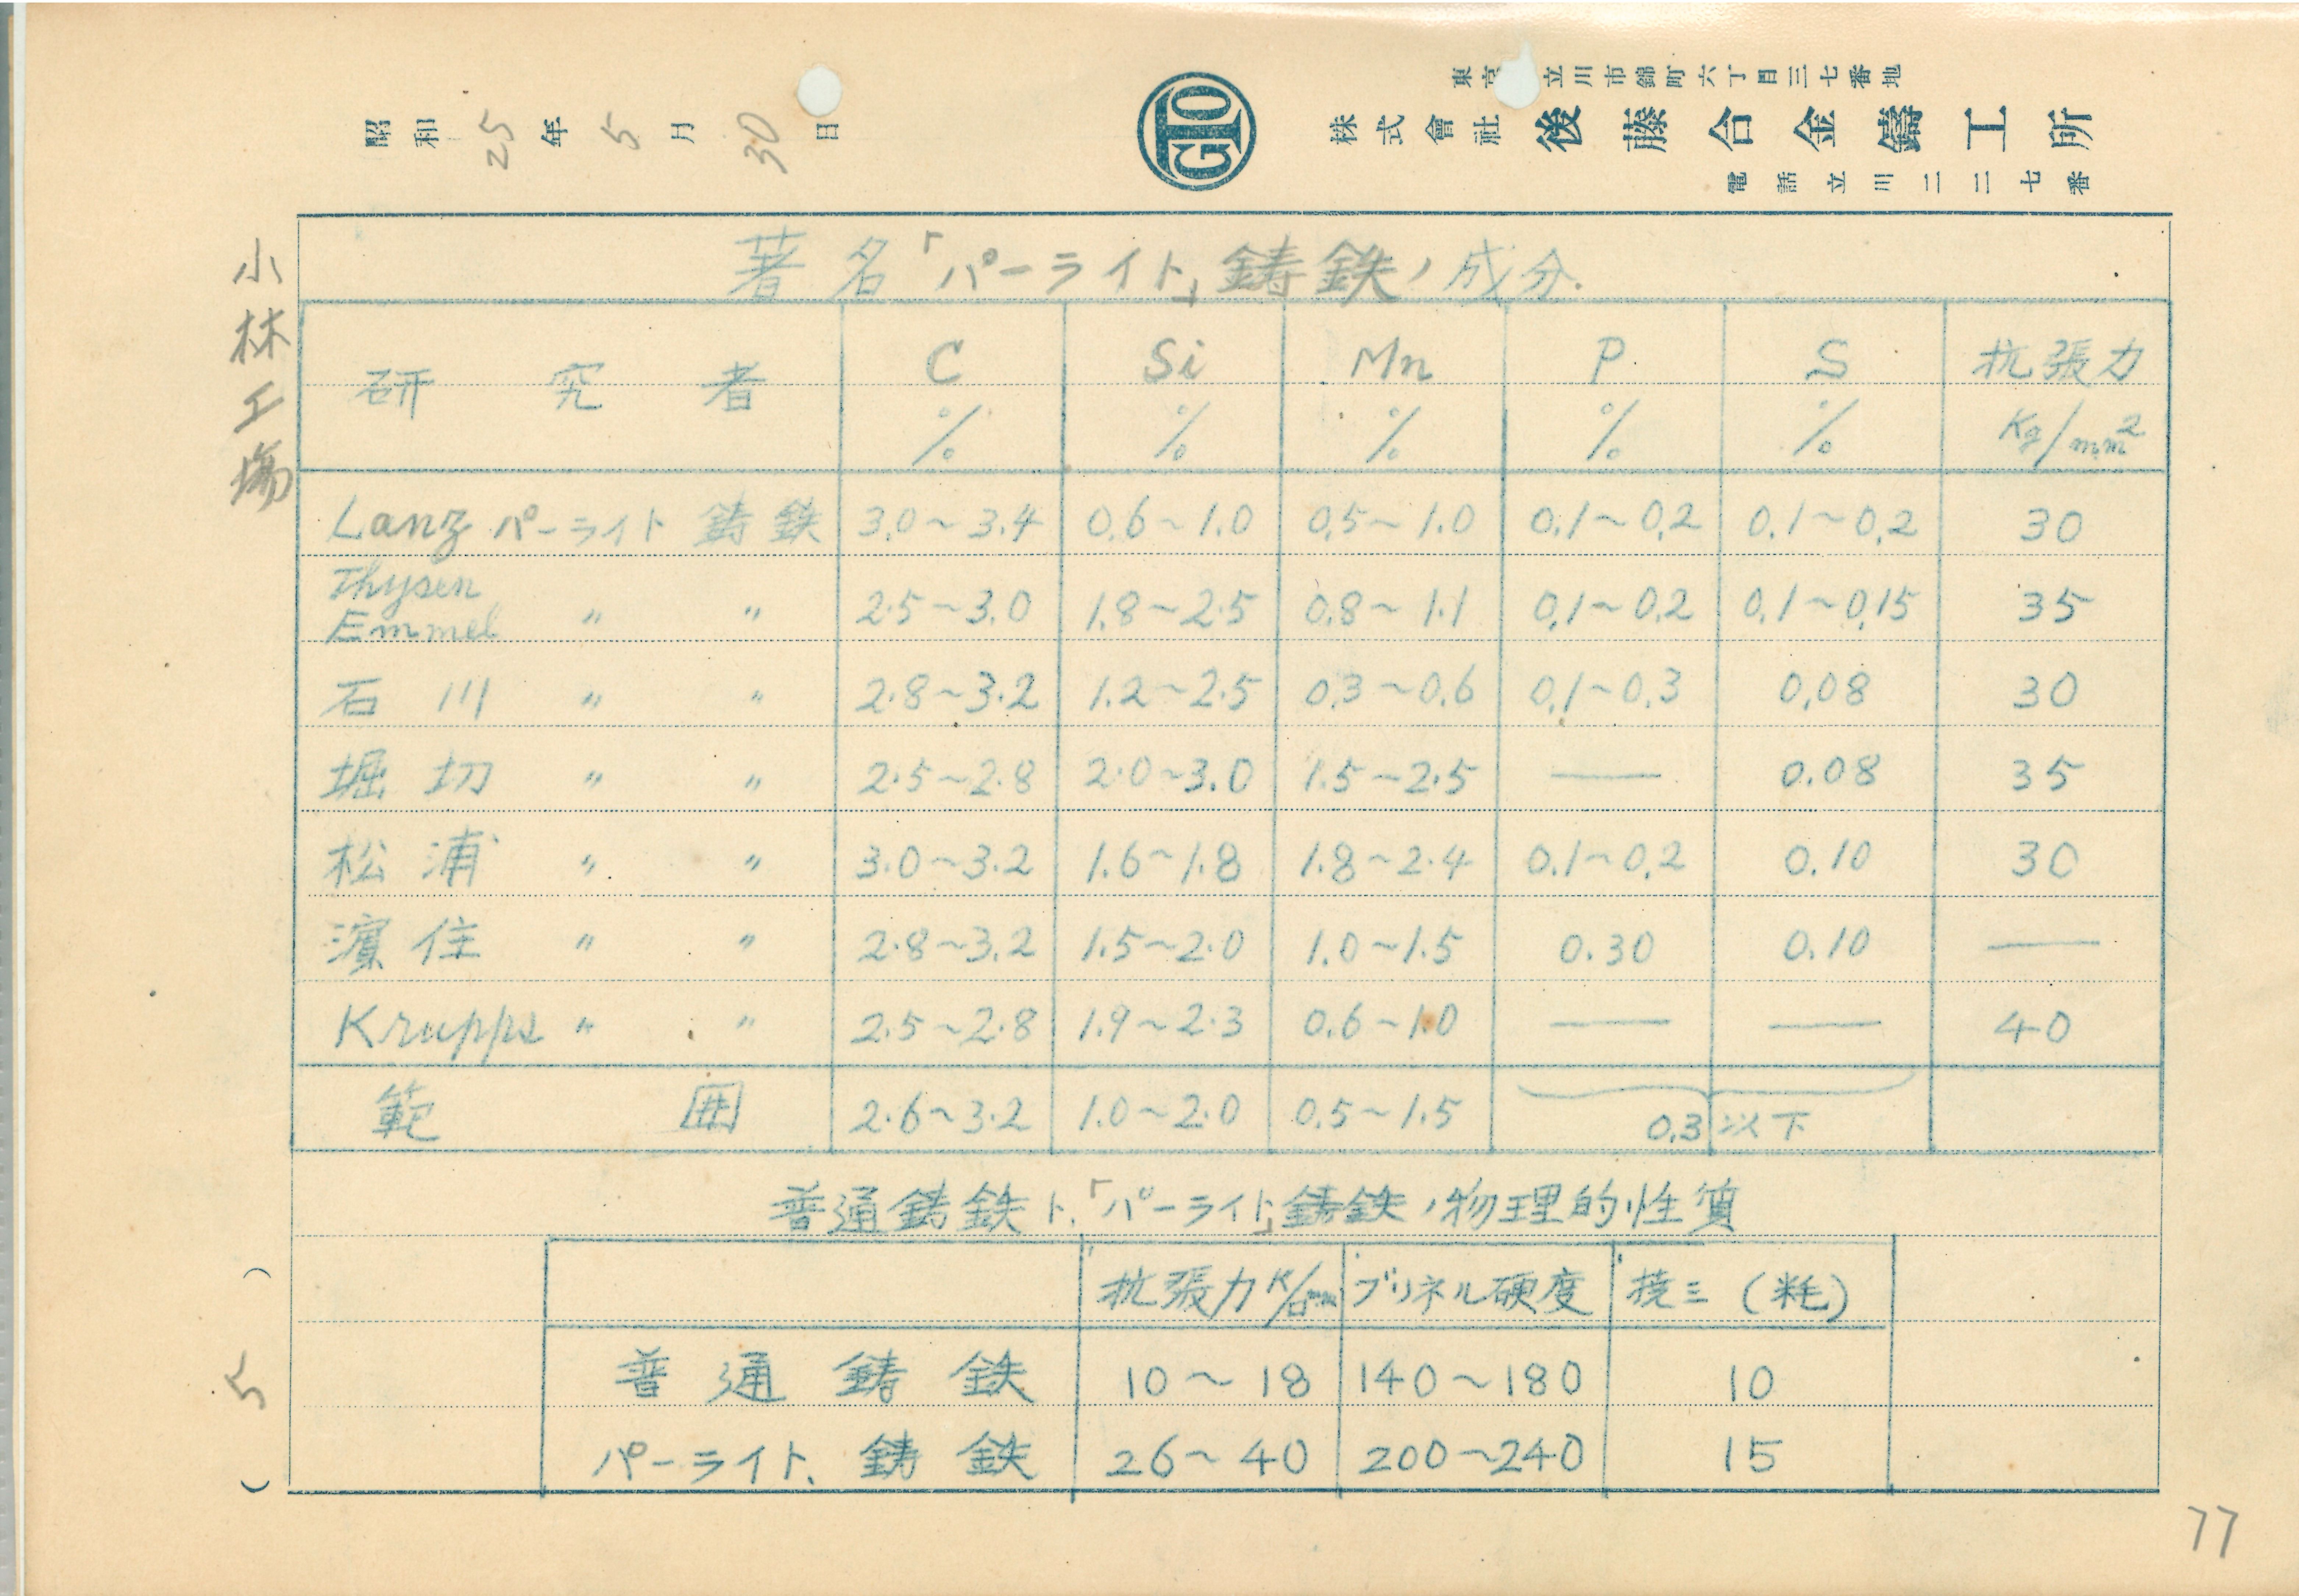 昭和25年5月30日
GTO
東京 立川市錦町六丁目三七番地
株式會社 後藤合金鑄工所
電話立川二二七番
小林工場
著名「パーライト」鋳鉄ノ成分.
研究者 C % Si % Mn % P % S % 抗張力 Kg/mm2
Lanz パーライト 鋳鉄 3.0～3.4 0.6～1.0 0.5～1.0 0.1～0.2 0.1～0.2 30
Thysen Emmel 〃 〃 2.5～3.0 1.8～2.5 0.8～1.1 0.1～0.2 0.1～0.15 35
石川 〃 〃 2.8～3.2 1.2～2.5 0.3～0.6 0.1～0.3 0.08 30
堀切 〃 〃 2.5～2.8 2.0～3.0 1.5～2.5 — 0.08 35
松浦 〃 〃 3.0～3.2 1.6～1.8 1.8～2.4 0.1～0.2 0.10 30
濱住 〃 〃 2.8～3.2 1.5～2.0 1.0～1.5 0.30 0.10 —
Krupps 〃 〃 2.5～2.8 1.9～2.3 0.6～1.0 — — 40
範囲 2.6～3.2 1.0～2.0 0.5～1.5 0.3以下
普通鋳鉄ト「パーライト」鋳鉄ノ物理的性質
抗張力 K/□mm ブリネル硬度 撓ミ（粍）
普通鋳鉄 10～18 140～180 10
パーライト、鋳鉄 26～40 200～240 15
(5)
77